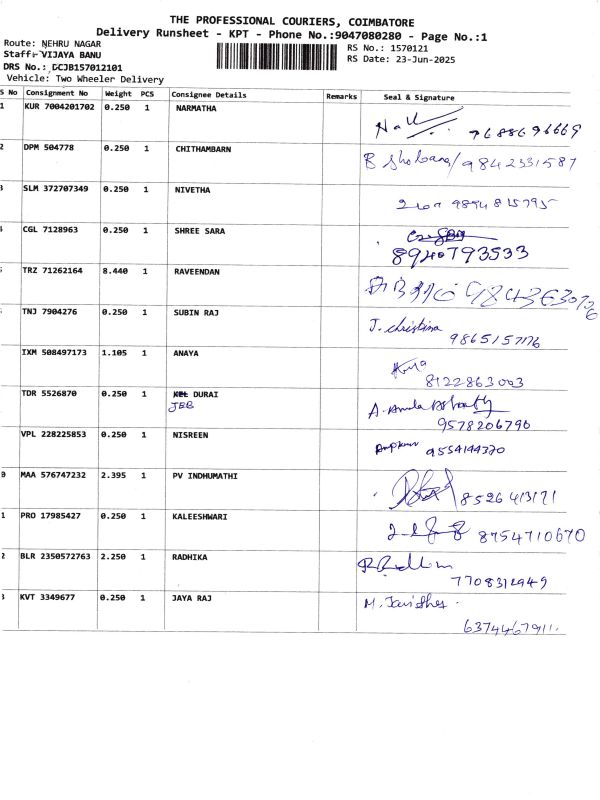 THE PROFESSIONAL COURIERS, COIMBATORE
Delivery Runsheet - KPT - Phone No.:9047080280 - Page No.:1
Route: NEHRU NAGAR
RS No.: 1570121
Staff: VIJAYA BANU
RS Date: 23-Jun-2025
DRS No.: DCJB157012101
Vehicle: Two Wheeler Delivery
S No Consignment No Weight PCS Consignee Details Remarks Seal & Signature
1 KUR 7004201702 0.250 1 NARMATHA
9688696669
2 DPM 504778 0.250 1 CHITHAMBARN
9842331587
3 SLM 372707349 0.250 1 NIVETHA
9894815795
4 CGL 7128963 0.250 1 SHREE SARA
8940793533
TRZ 71262164 8.440 1 RAVEENDAN
TNJ 7904276 0.250 1 SUBIN RAJ
J. christina
IXM 508497173 1.105 1 ANAYA
8122863003
TDR 5526870 0.250 1 DURAI
JEB
9578206790
VPL 228225853 0.250 1 NISREEN
9554144370
0 MAA 576747232 2.395 1 PV INDHUMATHI
8526413171
1 PRO 17985427 0.250 1 KALEESHWARI
8754710670
2 BLR 2350572763 2.250 1 RADHIKA
7708312949
3 KVT 3349677 0.250 1 JAYA RAJ
6374467911.